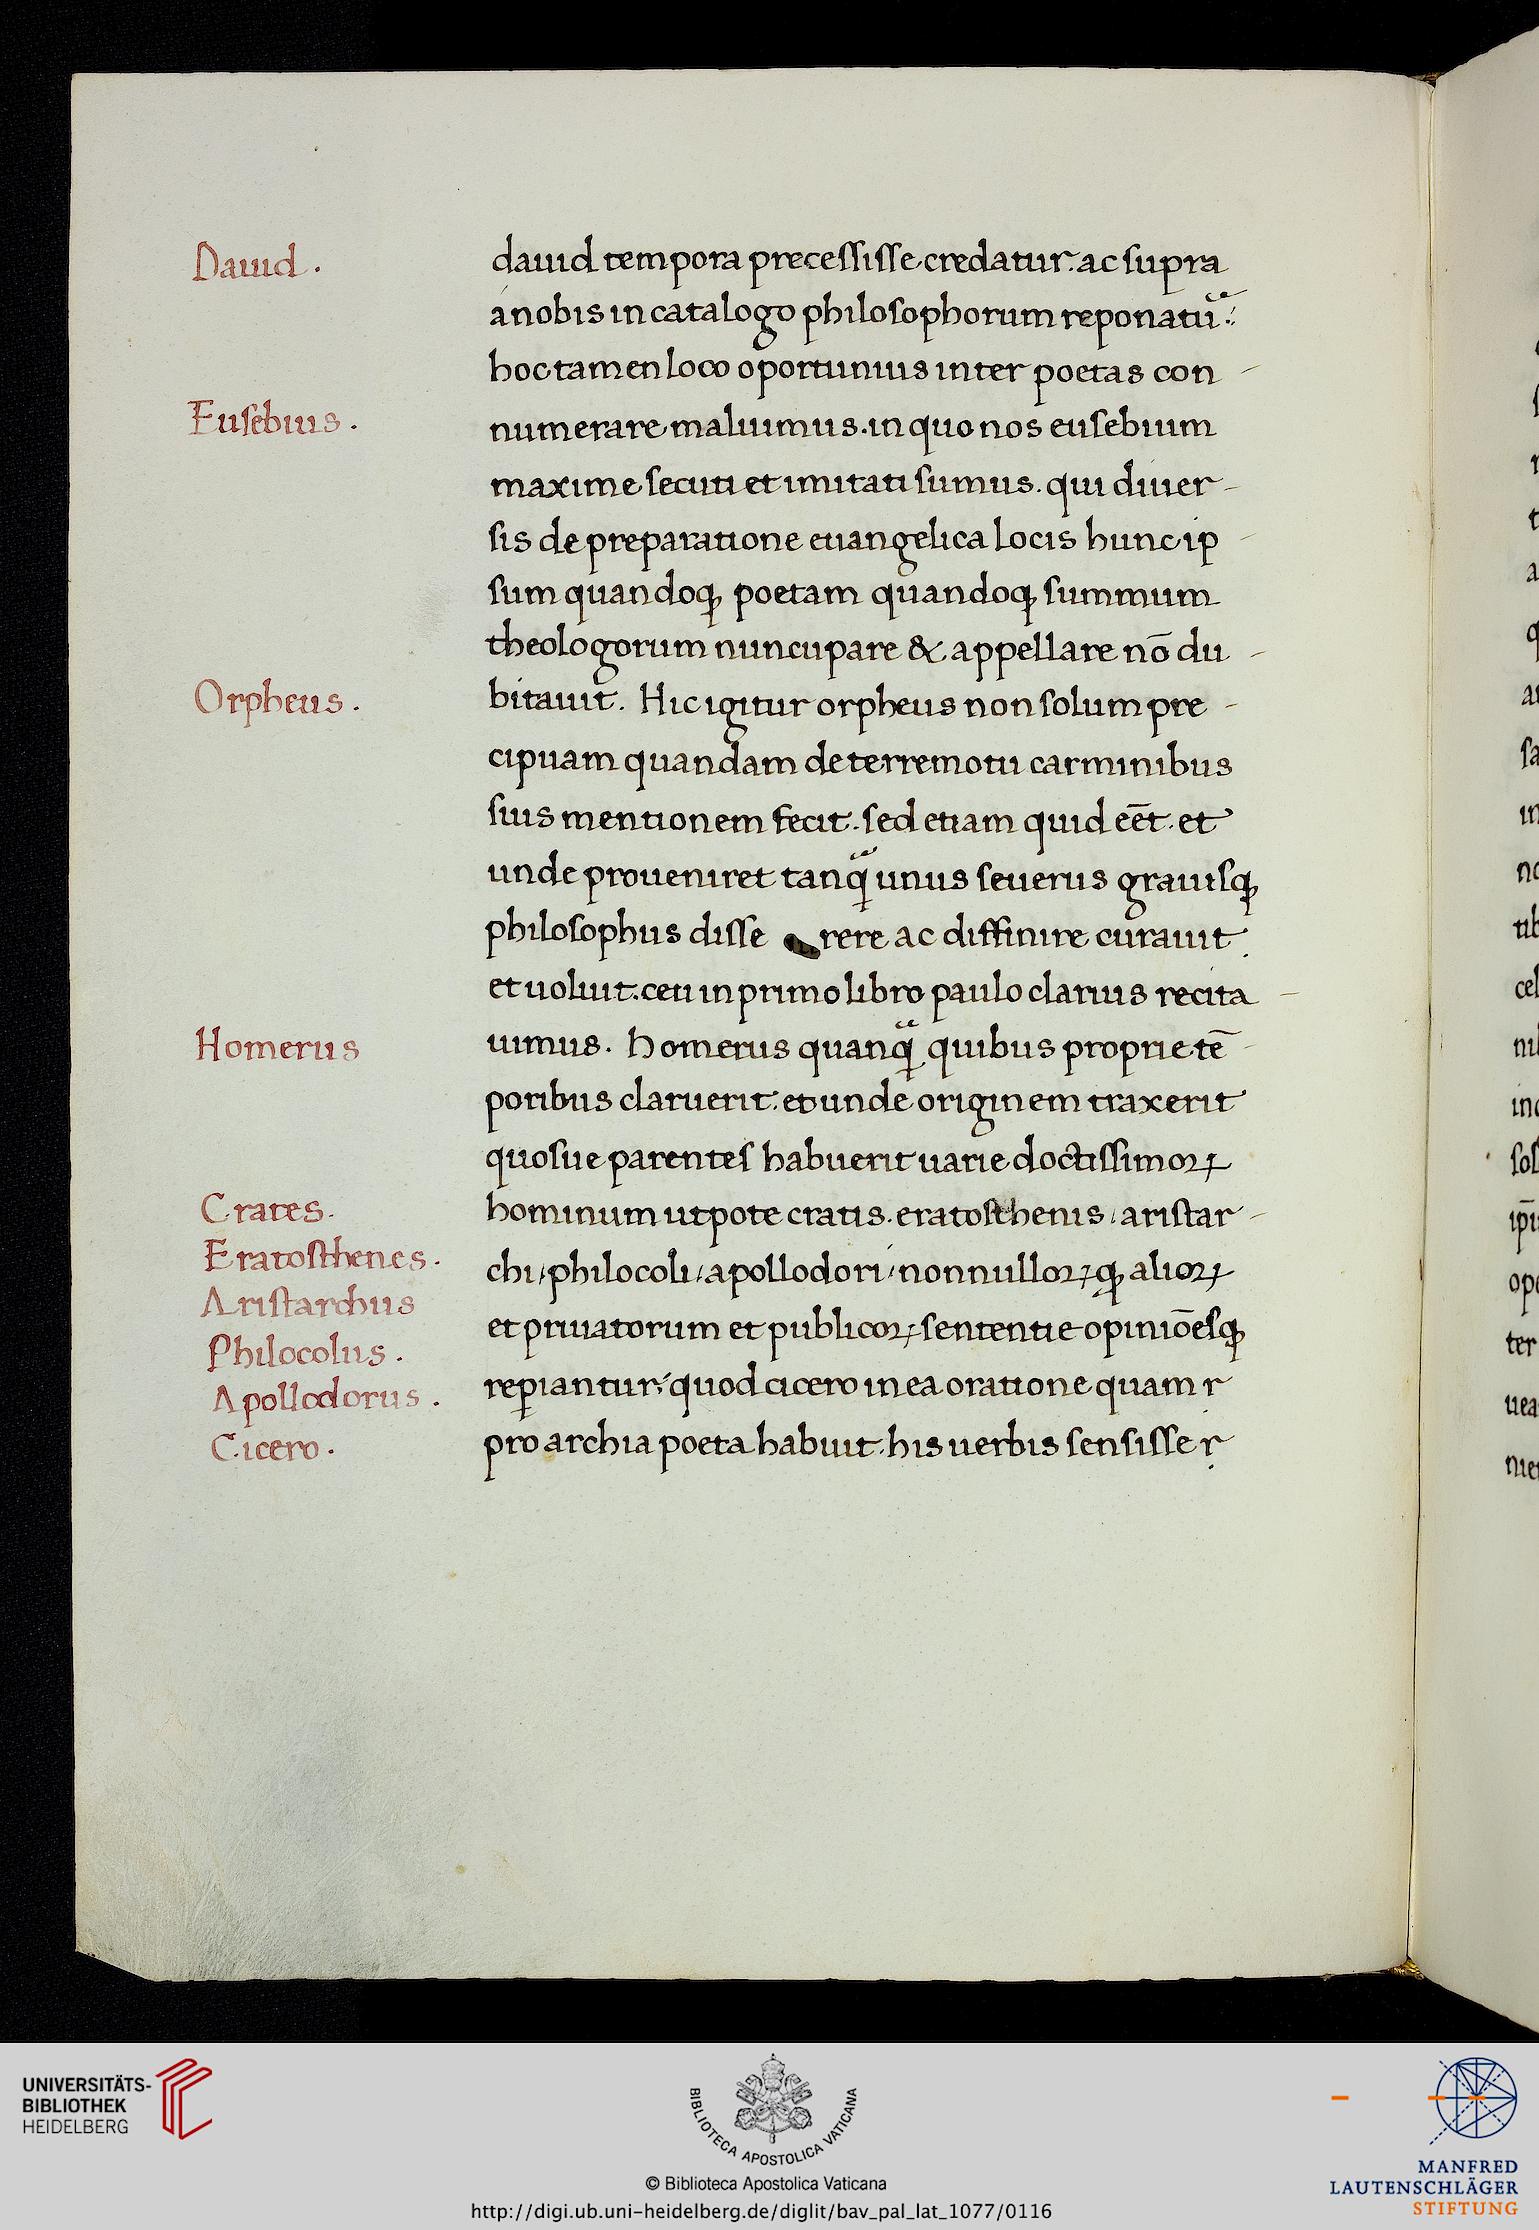 Dauid.
dauid tempora precessisse credatur. ac supra
a nobis in catalogo philosophorum reponatū:
hoc tamen loco oportunius inter poetas con
Eusebius.
numerare maluimus. in quo nos eusebium
maxime secuti et imitati sumus. qui diuer-
sis de preparatione euangelica locis hunc ip
sum quandoqꝫ poetam quandoqꝫ summum
theologorum nuncupare & appellare nō du
Orpheus.
bitauit. Hic igitur orpheus non solum pre
cipuam quandam de terremotu carminibus
suis mentionem fecit. sed etiam quid eēt. et
unde proueniret tanq̄ unus seuerus grauisqꝫ
philosophus disse rere ac diffinire curauit
et uoluit. ceu in primo libro paulo clarius recita
Homerus
uimus. Homerus quanq̄ quibus proprie tē
poribus claruerit. et unde originem traxerit
quosue parentes habuerit uarie doctissimoꝝ
Crates.
hominum utpote cratis. eratosthenis, aristar
Eratosthenes.
chi, philocoli, apollodori, nonnulloꝝqꝫ alioꝝ
Aristarchus
et priuatorum et publicoꝝ sententie opiniōesqꝫ
Philocolus.
reꝑiantur; quod cicero in ea oratione quam
Apollodorus.
pro archia poeta habuit. his uerbis sensisse
Cicero.
UNIVERSITÄTS-
BIBLIOTHEK
HEIDELBERG
BIBLIOTECA APOSTOLICA VATICANA
© Biblioteca Apostolica Vaticana
http://digi.ub.uni-heidelberg.de/diglit/bav_pal_lat_1077/0116
MANFRED
LAUTENSCHLÄGER
STIFTUNG